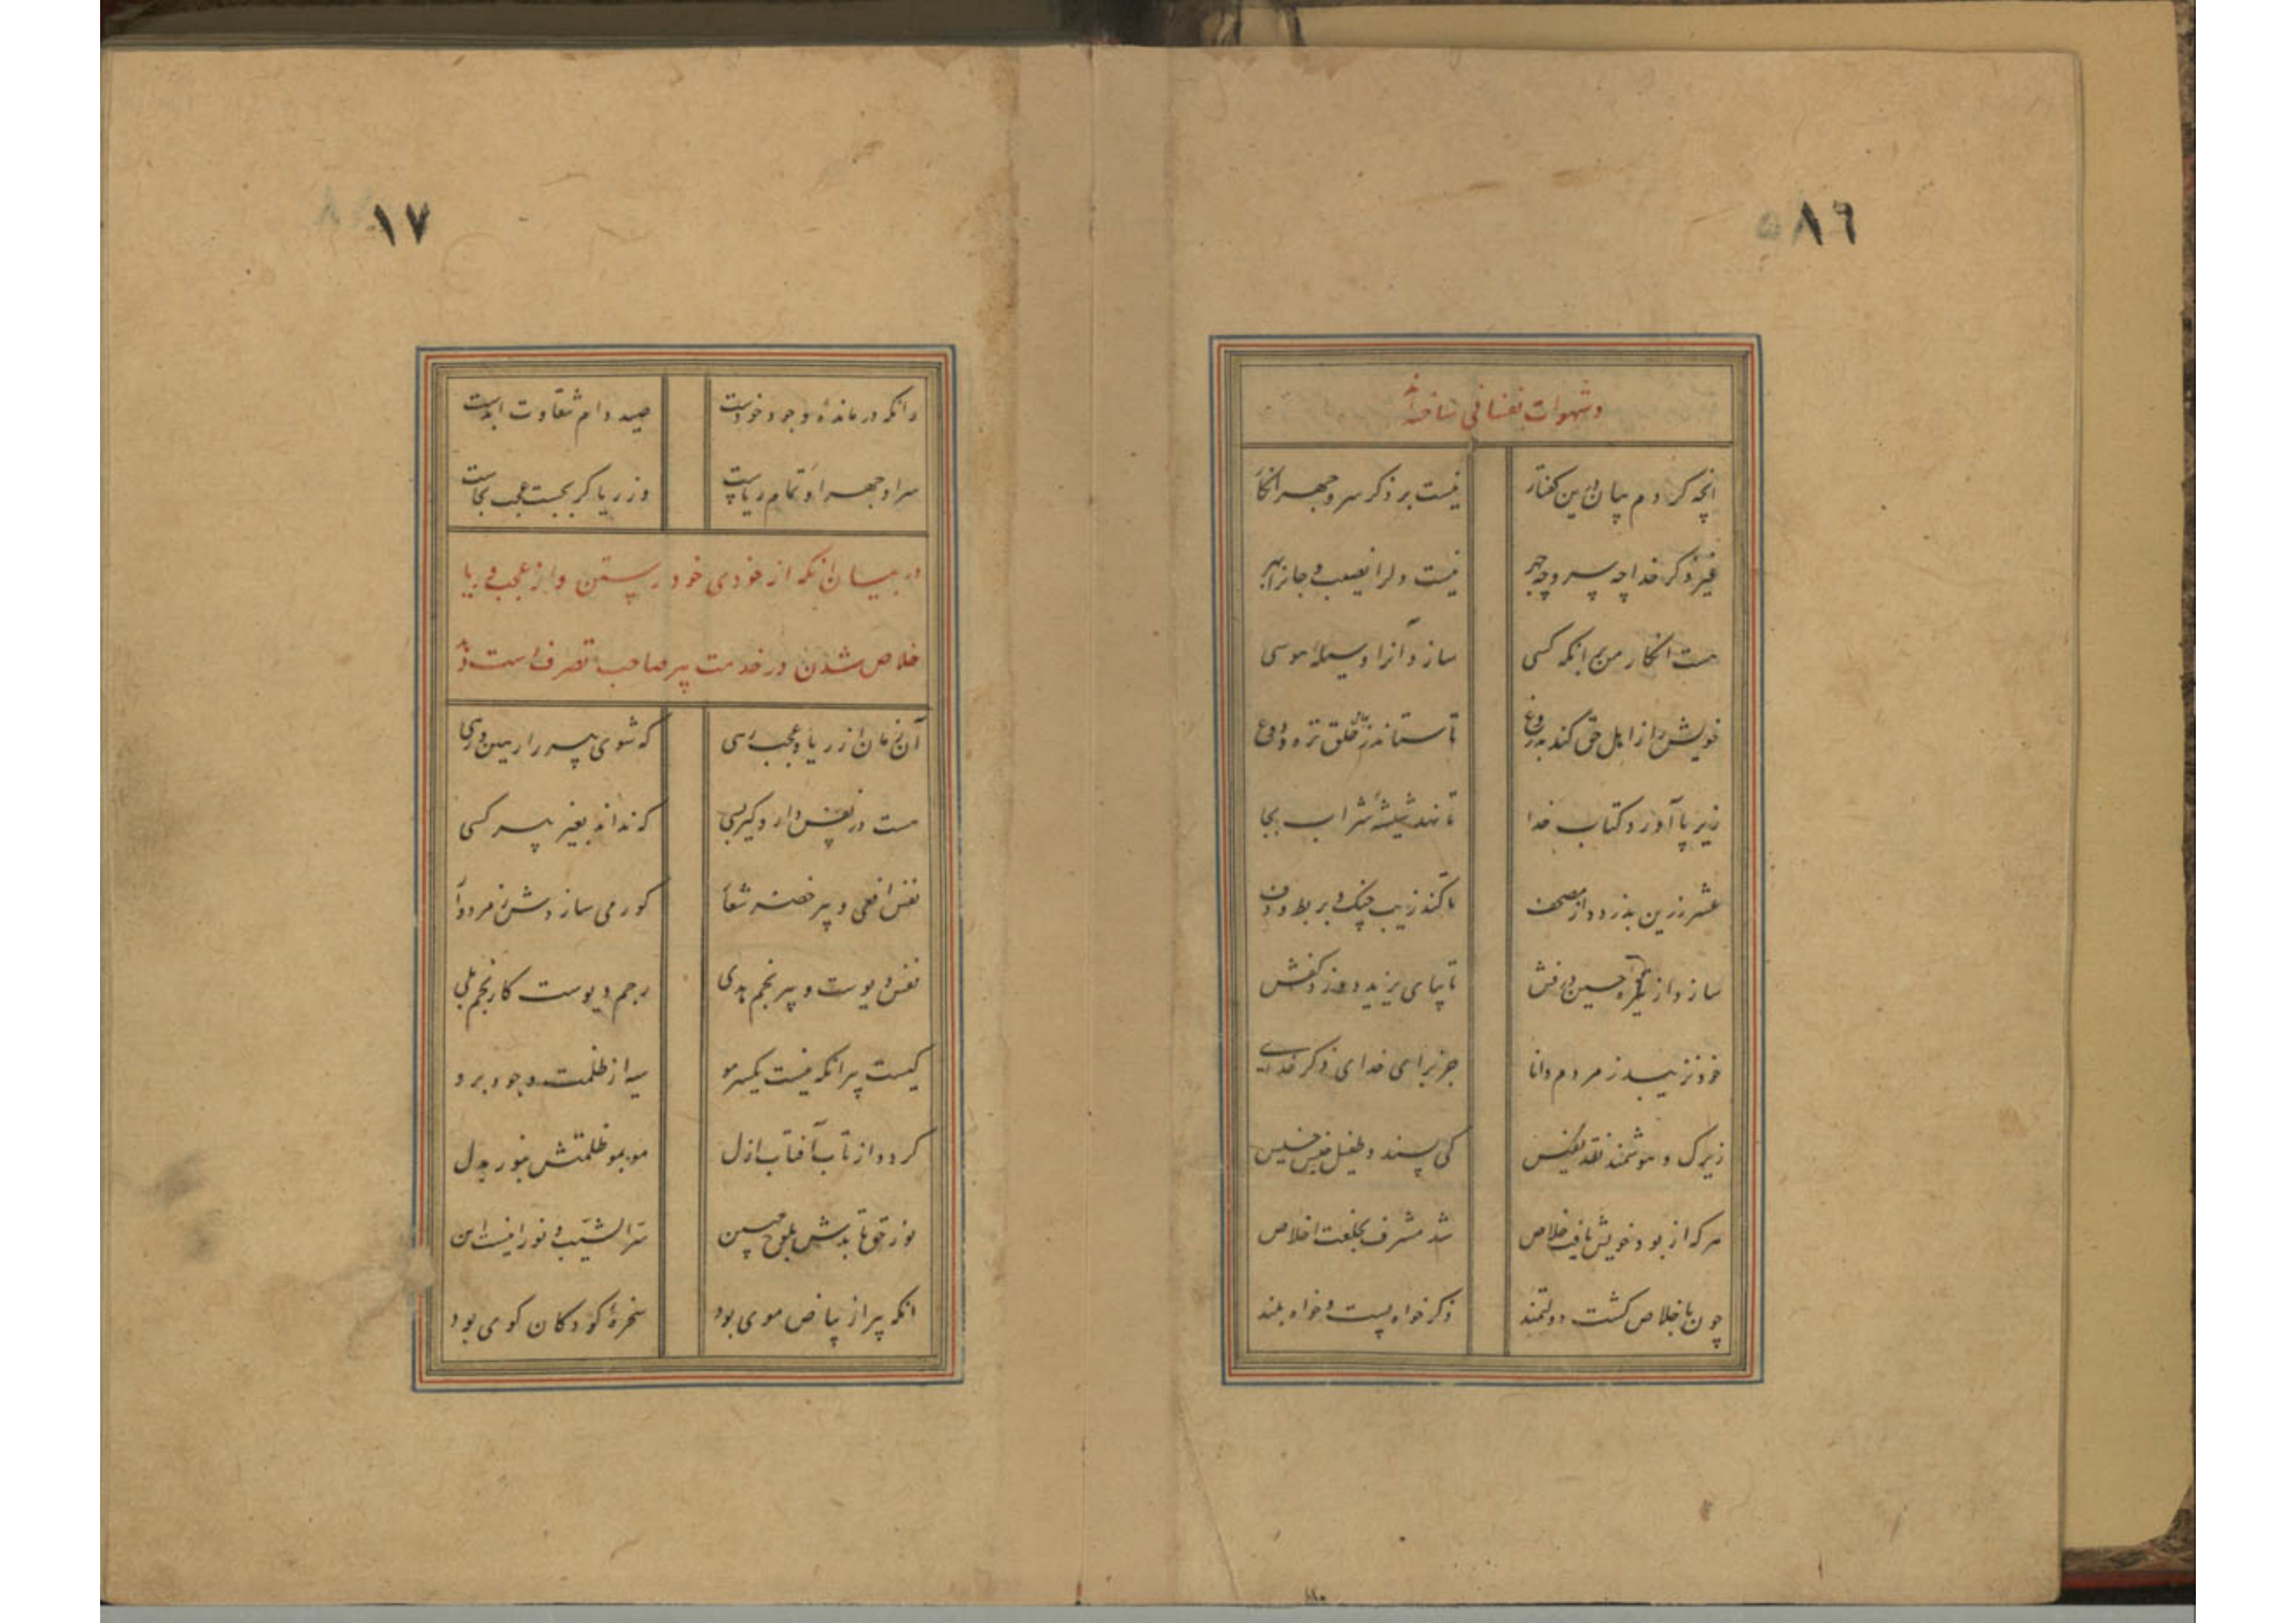 ٨٦
و شهوات نفسانی ساخته‌اند
انچه کردم بیان درین گفتار نیست بر ذکر سر و جهر انکار
غیر ذکر خدا چه سر و چه جهر نیست دلرا نصیب و جانرا بهر
هست انکار من بر انکه کسی سازد آنرا وسیلهٔ هوسی
خویش را ز اهل حق کند بدروغ تا ستاند ز خلق تره و دوغ
زیر پا آورد کتاب خدا تا نهد شیشهٔ شراب بجا
عشر زرین بدزدد از مصحف تا کند زیب چنک و بربط و دف
سازد از تیغ حسین درفش تا بپای یزید دوزد کفش
خود نزیبد ز مردم دانا جز برای خدای ذکر خدای
زیرک و هوشمند نقد نفیس کی پسندد طفیل جنس خسیس
هر که از بود خویش یافت خلاص شد مشرف بخلعت اخلاص
چون باخلاص کشت دولتمند ذکر خواه پست و خواه بلند
١٧
وانکه درماندهٔ وجود خودست صید دام شقاوت ابدست
سر او جهر او تمام ریاست وز ریا کر بجست عجب بجاست
در بیان انکه از خودی خود رستن و از عجب و ریا
خلاص شدن در خدمت پیر صاحب تصرف است
آن زمان از ریا و عجب رسی که شوی پیر را رهین و رهی
هست در نفس دار و کیر بسی که نداند بغیر پیر کسی
نفس افعی و پیر خضر شعار کور می سازدش زمردوار
نفس دیوست و پیر نجم هدی رجم دیوست کار نجم بلی
کیست پیر انکه نیست یکسر مو سیه از ظلمت وجود برو
کردد از تاب آفتاب ازل مو بمو ظلمتش بنور بدل
نور حق تابدش بلوح جبین سر الشیب و نور نیست این
انکه پیر از بیاض موی بود سخرهٔ کودکان کوی بود